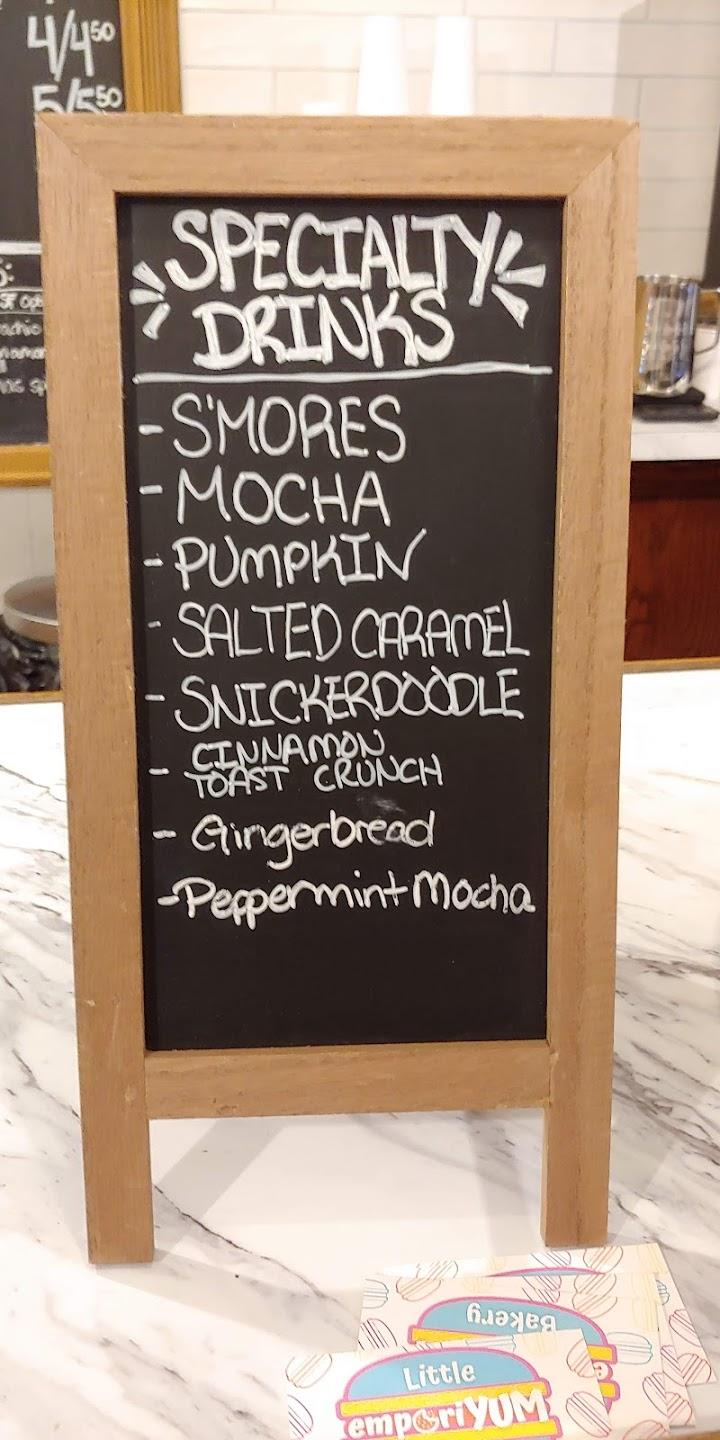 4/4⁵⁰
5/5⁵⁰
SPECIALTY
DRINKS
- S'MORES
- MOCHA
- PUMPKIN
- SALTED CARAMEL
- SNICKERDOODLE
- CINNAMON
TOAST CRUNCH
- Gingerbread
- Peppermint Mocha
Bakery
Little
emporiYUM